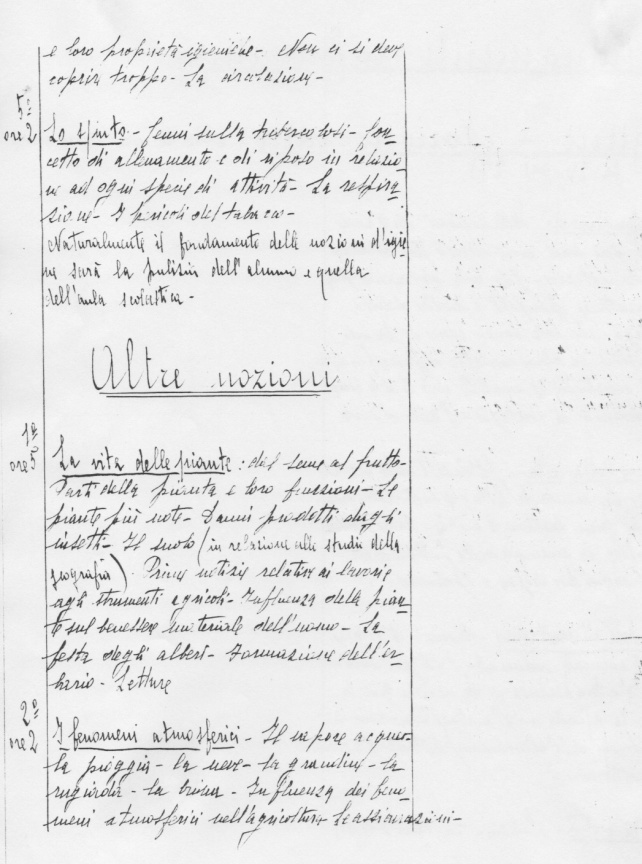 e loro proprietà igieniche - Non ci si deve
coprir troppo - La circolazione -
5°
ore 2
Lo sputo - Cenni sulla tubercolosi - Con
cetto di allenamento e di riposo in relazio
ne ad ogni specie di attività - La respira
zione - I pericoli del tabacco -
Naturalmente il fondamento delle nozioni d'igie
ne sarà la pulizia dell'alunno e quella
dell'aula scolastica -
Altre nozioni
1°
ore 5
La vita delle piante : dal seme al frutto -
Parti della pianta e loro funzioni - Le
piante più note - Danni prodotti dagli
insetti - Il suolo (in relazione allo studio della
geografia) - Prime notizie relative ai lavori e
agli strumenti agricoli - Influenza della pian
te sul benessere materiale dell'uomo - La
festa degli alberi - Formazione dell'er
bario - Letture
2°
ore 2
I fenomeni atmosferici - Il vapore acqueo -
la pioggia - la neve - la grandine - la
rugiada - la brina - Influenza dei feno
meni atmosferici nell'agricoltura Le assicurazioni -